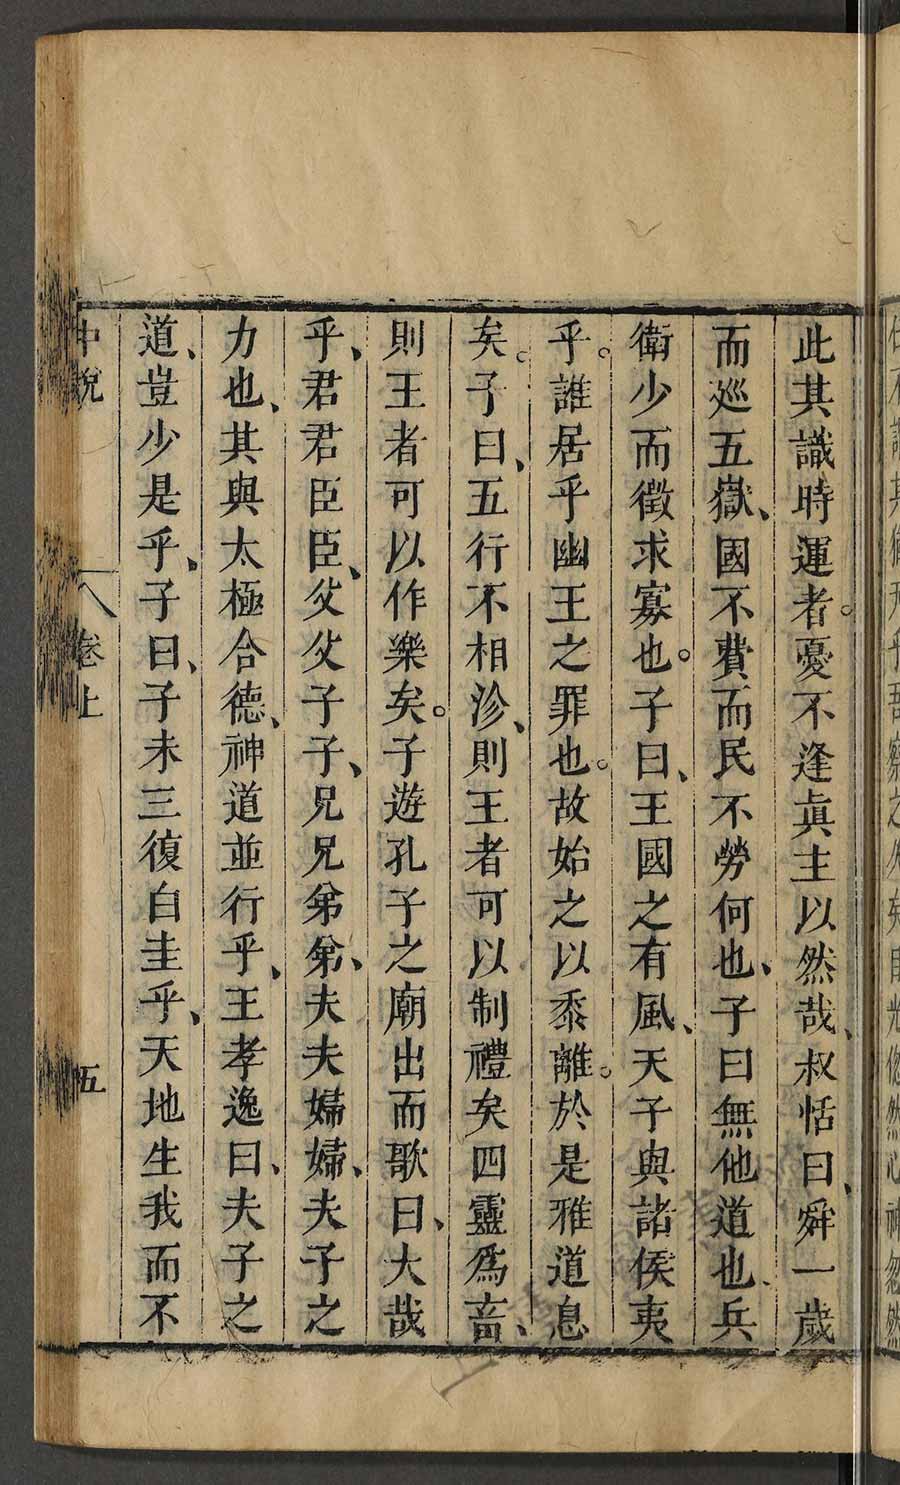 此其識時運者。憂不逢眞主以然哉、叔恬曰、舜一歲
而廵五嶽、國不費而民不勞何也、子曰無他道也、兵
衛少而徵求寡也。子曰、王國之有風、天子與諸侯夷
乎。誰居乎幽王之罪也。故始之以黍離。於是雅道息
矣。子曰、五行不相沴、則王者可以制禮矣四靈爲畜、
則王者可以作樂矣。子遊孔子之廟出而歌曰、大哉
乎、君君臣臣、父父子子、兄兄弟弟、夫夫婦婦、夫子之
力也、其與太極合德、神道並行乎、王孝逸曰、夫子之
道、豈少是乎、子曰、子未三復白圭乎、天地生我而不
中說
卷上
五